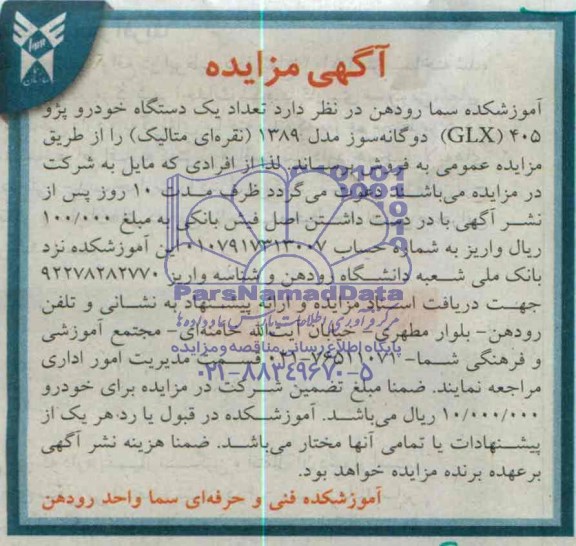 آگهی مزایده
آموزشکده سما رودهن در نظر دارد تعداد یک دستگاه خودرو پژو
۴۰۵ (GLX) دوگانه‌سوز مدل ۱۳۸۹ (نقره‌ای متالیک) را از طریق
مزایده عمومی به فروش برساند. لذا از افرادی که مایل به شرکت
در مزایده می‌باشند دعوت می‌گردد ظرف مدت ۱۰ روز پس از
نشر آگهی با در دست داشتن اصل فیش بانکی به مبلغ ۱۰۰/۰۰۰
ریال واریز به شماره حساب ۰۱۰۷۹۱۷۳۱۳۰۰۷ این آموزشکده نزد
بانک ملی شعبه دانشگاه رودهن و شناسه واریز ۹۲۲۷۸۲۸۲۷۷۰
جهت دریافت اسناد مزایده و ارائه پیشنهاد به نشانی و تلفن
رودهن- بلوار مطهری- خیابان آیت‌الله خامنه‌ای- مجتمع آموزشی
و فرهنگی شما- ۰۲۱ قسمت مدیریت امور اداری
مراجعه نمایند. ضمنا مبلغ تضمین شرکت در مزایده برای خودرو
۱۰/۰۰۰/۰۰۰ ریال می‌باشد. آموزشکده در قبول یا رد هر یک از
پیشنهادات یا تمامی آنها مختار می‌باشد. ضمنا هزینه نشر آگهی
برعهده برنده مزایده خواهد بود.
آموزشکده فنی و حرفه‌ای سما واحد رودهن
ParsNamadData
پایگاه اطلاع رسانی مناقصه و مزایده
۰۲۱-۸۸۳۴۹۶۷۰-۵